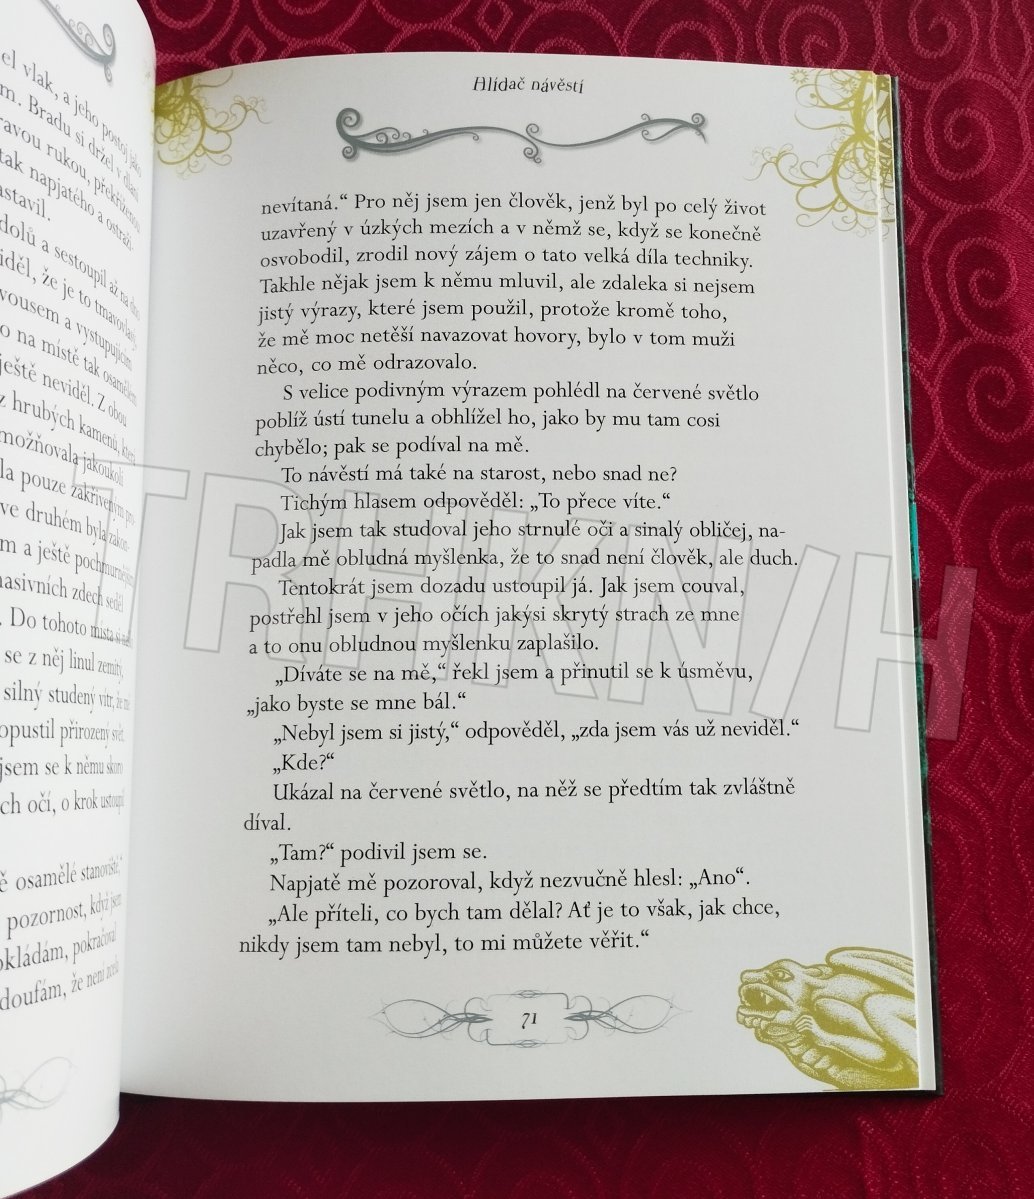 el vlak, a jeho postoj jako
m. Bradu si držel v dlani
ravou rukou, překříženou
tak napjatého a ostraži-
astavil.
dolů a sestoupil až na
iděl, že je to tmavovlasý
vousem a vystupujícím
o na místě tak osamělém
ještě neviděl. Z obou
z hrubých kamenů, která
možňovala jakoukoli
la pouze zakřiveným pro-
ve druhém byla zakon-
m a ještě pochmurnější
masivních zdech seděl
. Do tohoto místa si
se z něj linul zemitý,
silný studený vítr, že mě
opustil přirozený svět.
jsem se k němu skoro
ch očí, o krok ustoupil
ě osamělé stanoviště,“
pozornost, když jsem
okládám, pokračoval
doufám, že není zcela
Hlídač návěstí
nevítaná.“ Pro něj jsem jen člověk, jenž byl po celý život
uzavřený v úzkých mezích a v němž se, když se konečně
osvobodil, zrodil nový zájem o tato velká díla techniky.
Takhle nějak jsem k němu mluvil, ale zdaleka si nejsem
jistý výrazy, které jsem použil, protože kromě toho,
že mě moc netěší navazovat hovory, bylo v tom muži
něco, co mě odrazovalo.
S velice podivným výrazem pohlédl na červené světlo
poblíž ústí tunelu a obhlížel ho, jako by mu tam cosi
chybělo; pak se podíval na mě.
To návěstí má také na starost, nebo snad ne?
Tichým hlasem odpověděl: „To přece víte.“
Jak jsem tak studoval jeho strnulé oči a sinalý obličej, na-
padla mě obludná myšlenka, že to snad není člověk, ale duch.
Tentokrát jsem dozadu ustoupil já. Jak jsem couval,
postřehl jsem v jeho očích jakýsi skrytý strach ze mne
a to onu obludnou myšlenku zaplašilo.
„Díváte se na mě,“ řekl jsem a přinutil se k úsměvu,
„jako byste se mne bál.“
„Nebyl jsem si jistý,“ odpověděl, „zda jsem vás už neviděl.“
„Kde?“
Ukázal na červené světlo, na něž se předtím tak zvláštně
díval.
„Tam?“ podivil jsem se.
Napjatě mě pozoroval, když nezvučně hlesl: „Ano“.
„Ale příteli, co bych tam dělal? Ať je to však, jak chce,
nikdy jsem tam nebyl, to mi můžete věřit.“
71
TRHKNIH